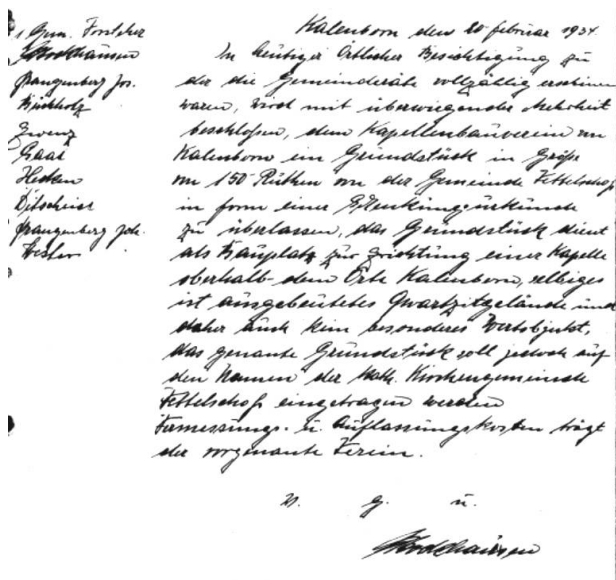 Gem. Forstcher
Brodhausen
Prangenberg Jos.
Buchholz
Zwenz
Haas
Hecken
Ditscheid
Prangenberg Joh.
Kalenborn den 20 februar 1934.
In heutiger Örtlicher Besichtigung zu
der die Gemeinderäte vollzählig erschienen
waren, wird mit überwiegender Mehrheit
beschlossen, dem Kapellenbauverein in
Kalenborn ein Grundstück in Größe
von 150 Ruthen von der Gemeinde Vettelschoß
in form einer Schenkungsurkunde
zu überlassen, das Grundstück dient
als Bauplatz zur Errichtung einer Kapelle
oberhalb dem Orte Kalenborn, selbiges
ist ausgebeutetes Quartzitgelände und
daher auch kein besonderes Wertobjekt,
das genante Grundstück soll jedoch auf
den Namen der Kath. Kirchengemeinde
Vettelschoß eingetragen werden
Vermessungs- u. Auflassungskosten trägt
der vorgenante Verein.
v. g. u.
Brodhausen